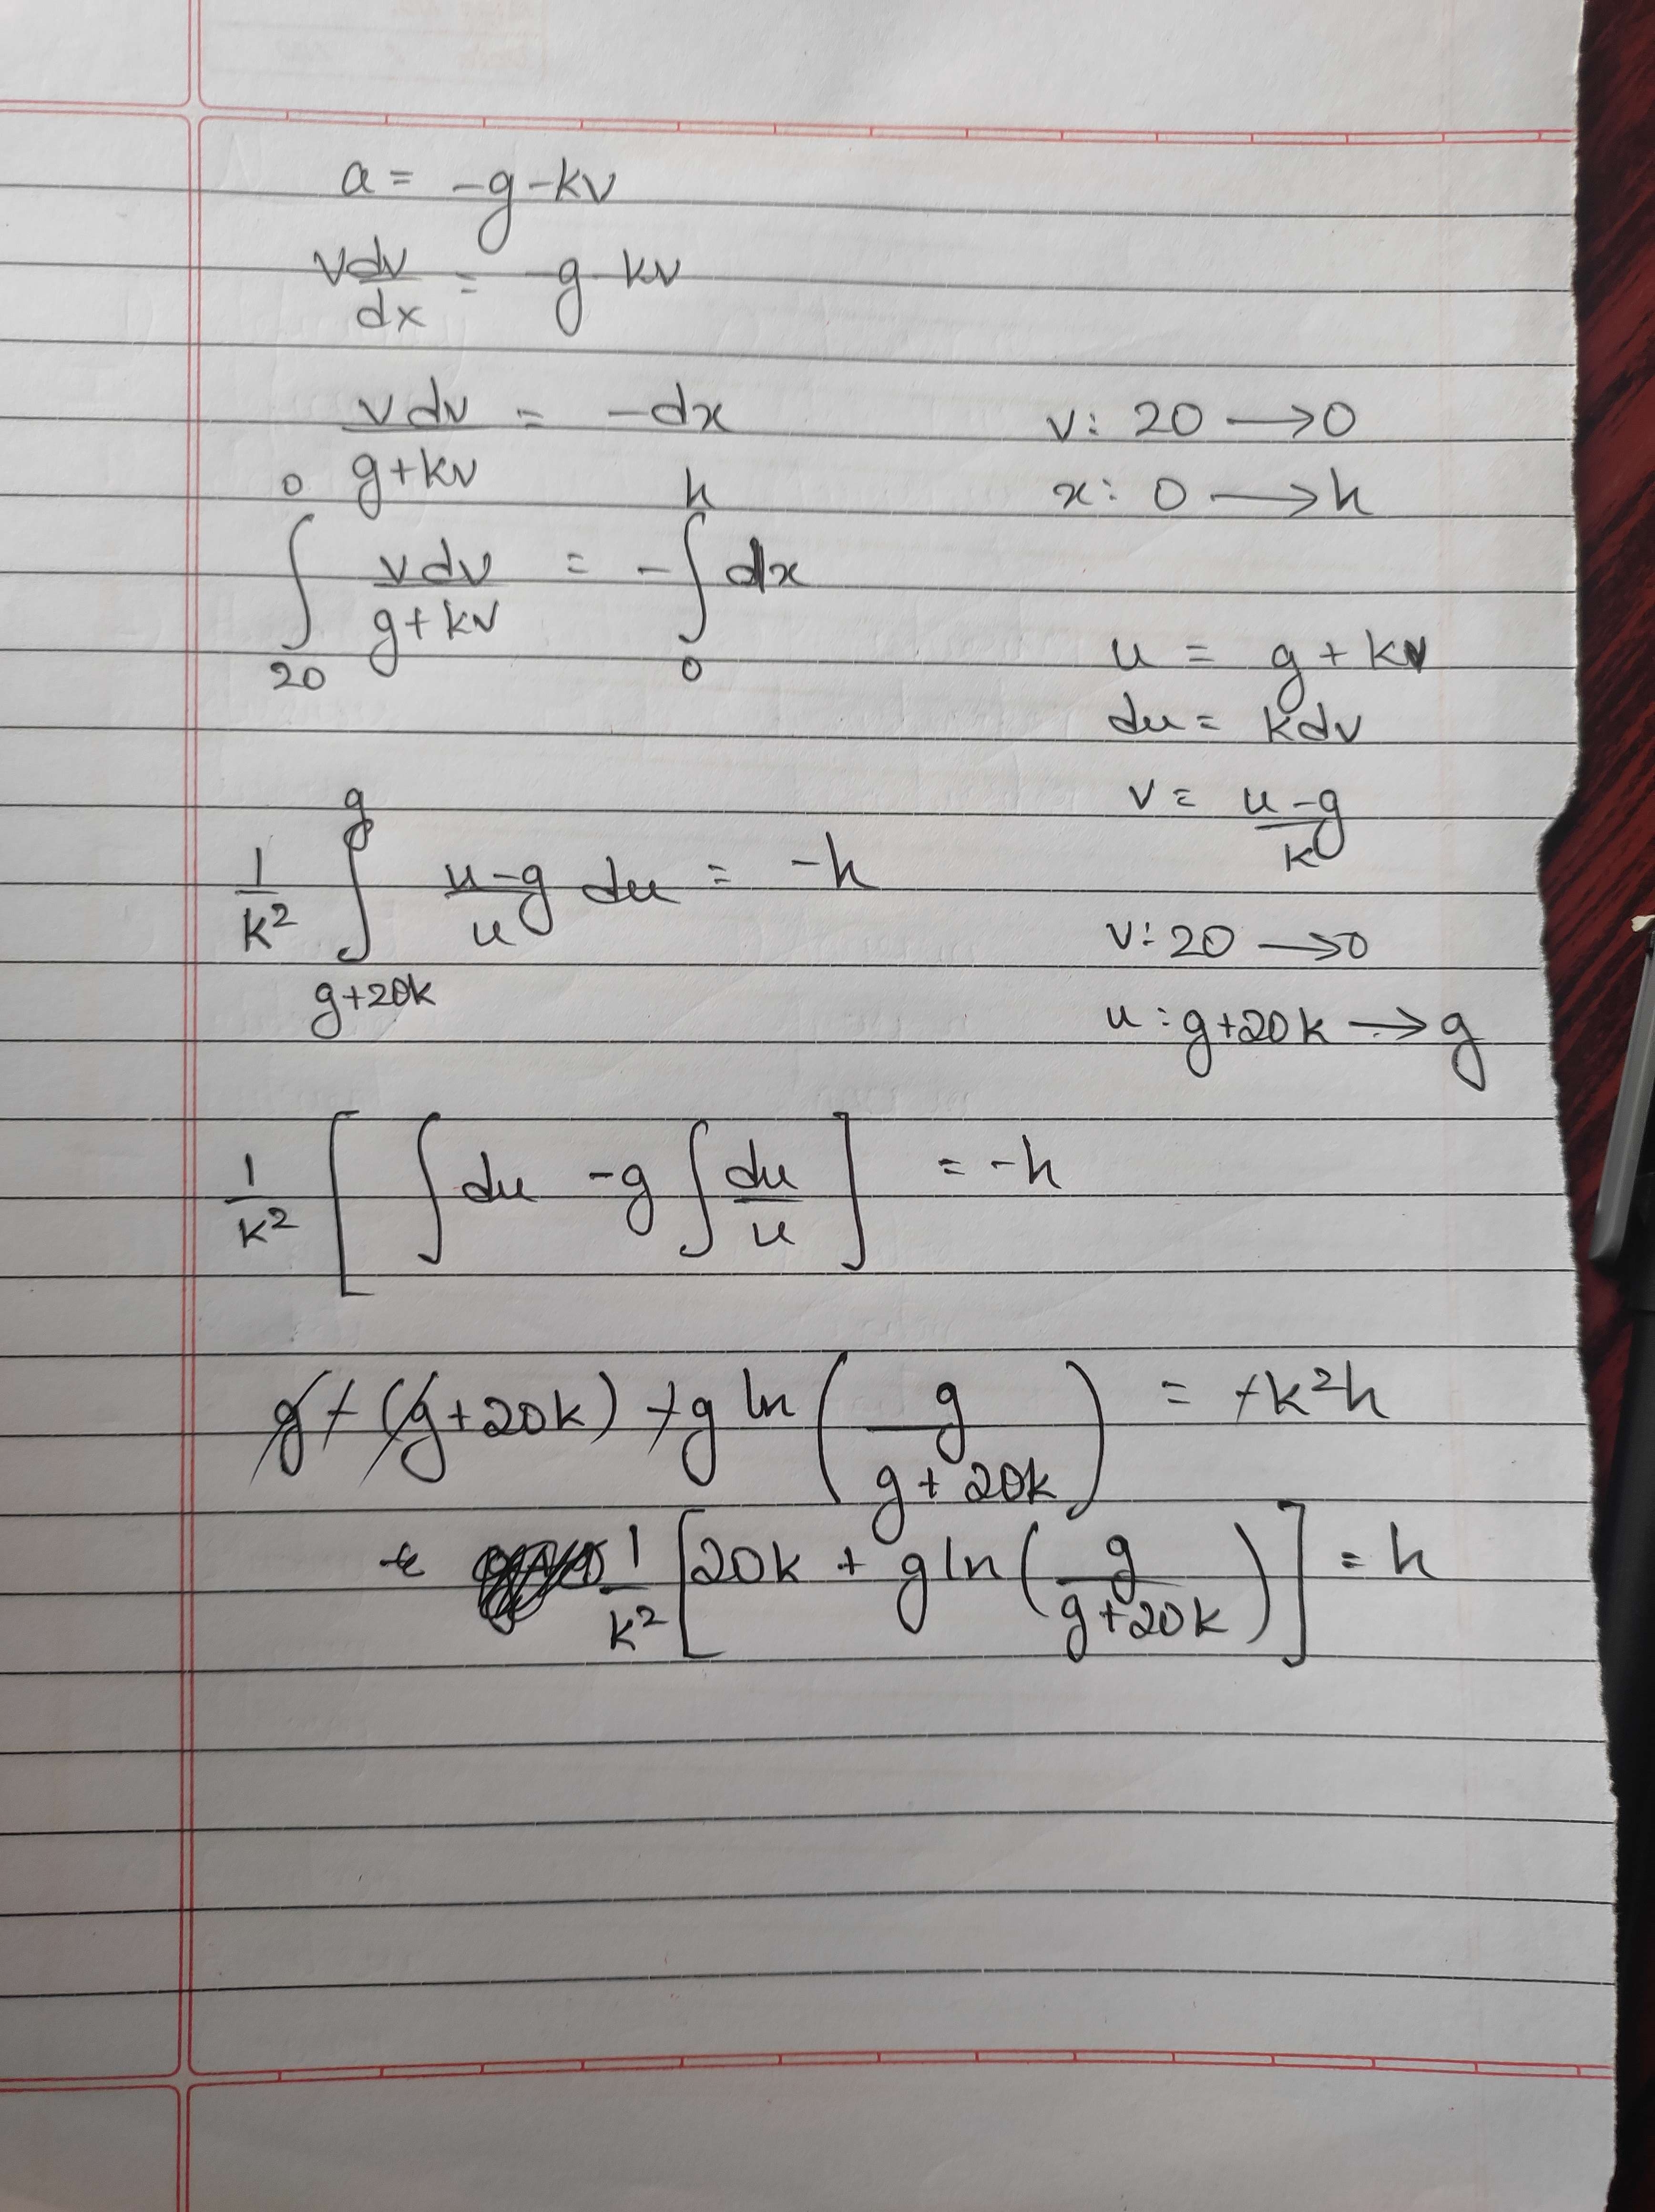 a = -g-kv
v dv/dx = -g-kv
v dv/(g+kv) = -dx
v: 20 → 0
x: 0 → h
∫_{20}^{0} v dv/(g+kv) = -∫_{0}^{h} dx
u = g+kv
du = kdv
v = (u-g)/k
1/k² ∫_{g+20k}^{g} (u-g)/u du = -h
v: 20 → 0
u: g+20k → g
1/k² [ ∫du -g ∫du/u ] = -h
g-(g+20k) -g ln( g/(g+20k) ) = -k²h
1/k² [20k + g ln( g/(g+20k) )] = h